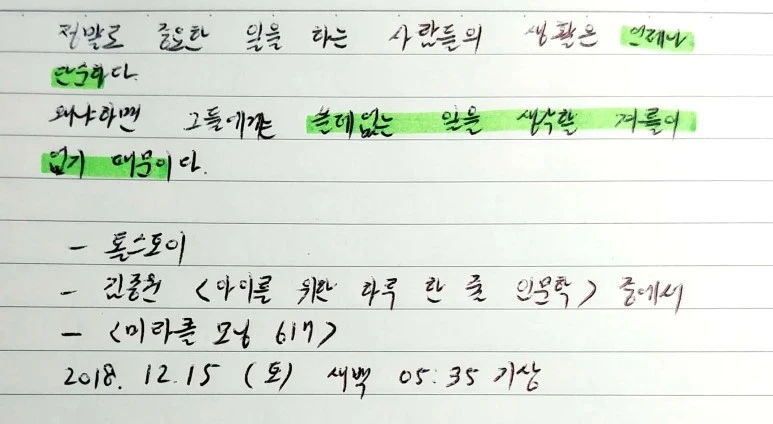 정말로 중요한 일을 하는 사람들의 생활은 언제나
단순하다.
왜냐하면 그들에게는 쓸데없는 일을 생각할 겨를이
없기 때문이다.
- 톨스토이
- 김종원 <아이를 위한 하루 한 줄 인문학> 중에서
- <미라클 모닝 617>
2018. 12. 15 (토) 새벽 05:35 기상